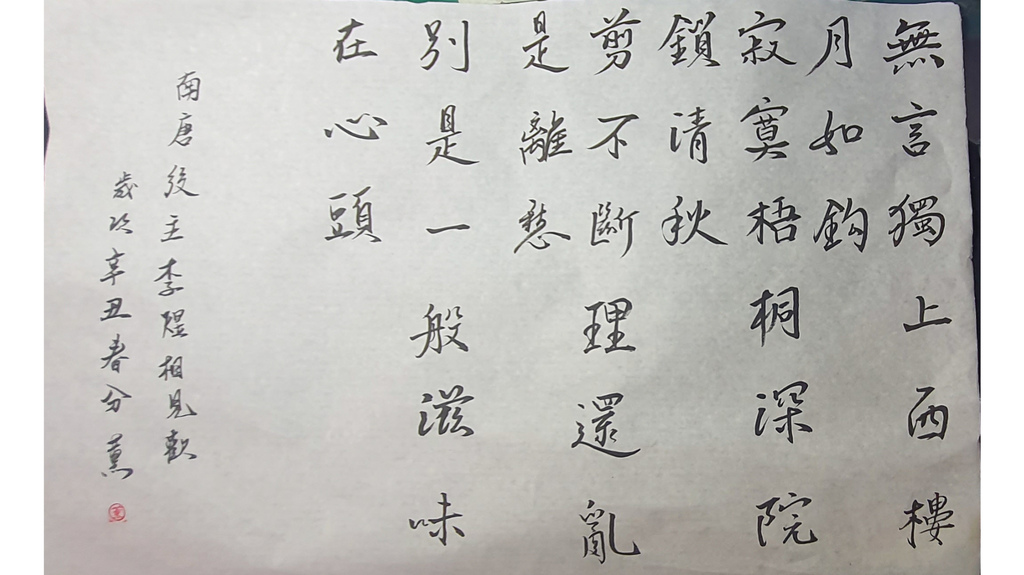 無言獨上西樓
月如鈎
寂寞梧桐深院
鎖清秋
剪不斷理還亂
是離愁
別是一般滋味
在心頭
南唐後主李煜相見歡
歲次辛丑春分薫